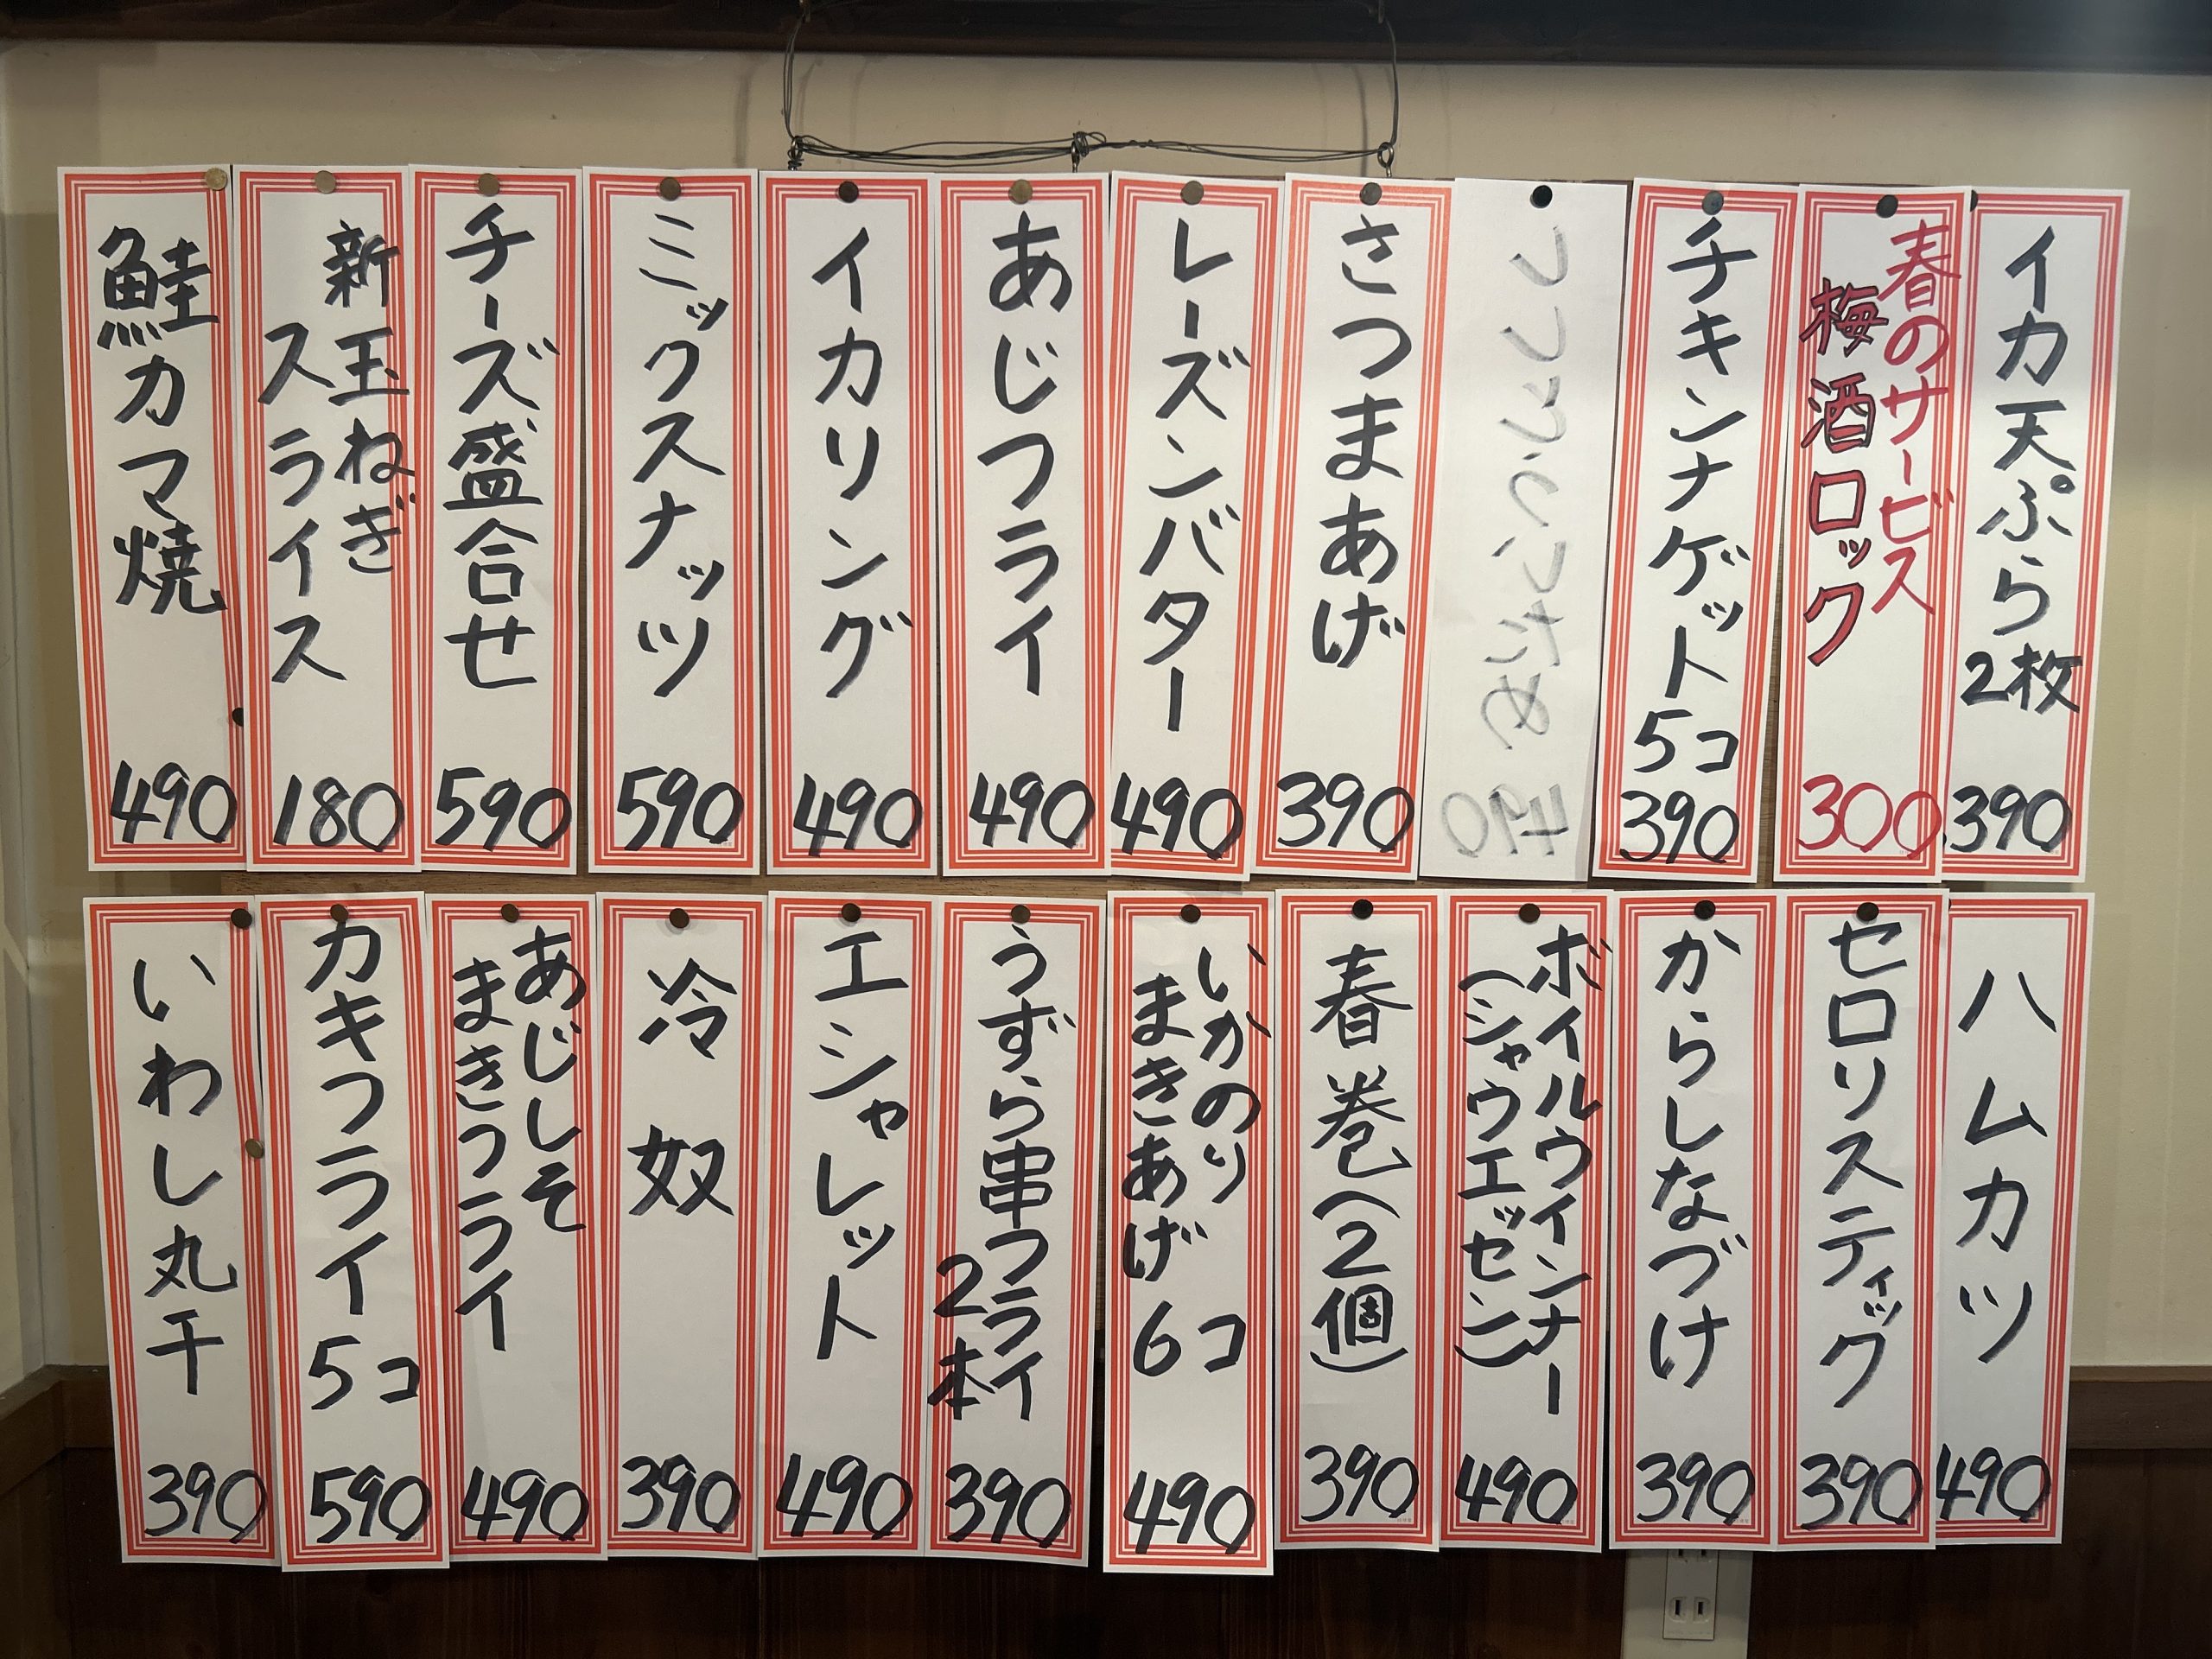 イカ天ぷら2枚
390
春のサービス
梅酒ロック
300
チキンナゲット5コ
390
さつまあげ
390
レーズンバター
490
あじフライ
490
イカリング
490
ミックスナッツ
590
チーズ盛合せ
590
新玉ねぎ
スライス
180
鮭カマ焼
490
ハムカツ
490
セロリスティック
390
からしなづけ
390
ボイルウインナー
(シャウエッセン)
490
春巻(2個)
390
いかのり
まきあげ6コ
490
うずら串フライ
2本
390
エシャレット
490
冷奴
390
あじしそ
まきフライ
490
カキフライ5コ
590
いわし丸干
390